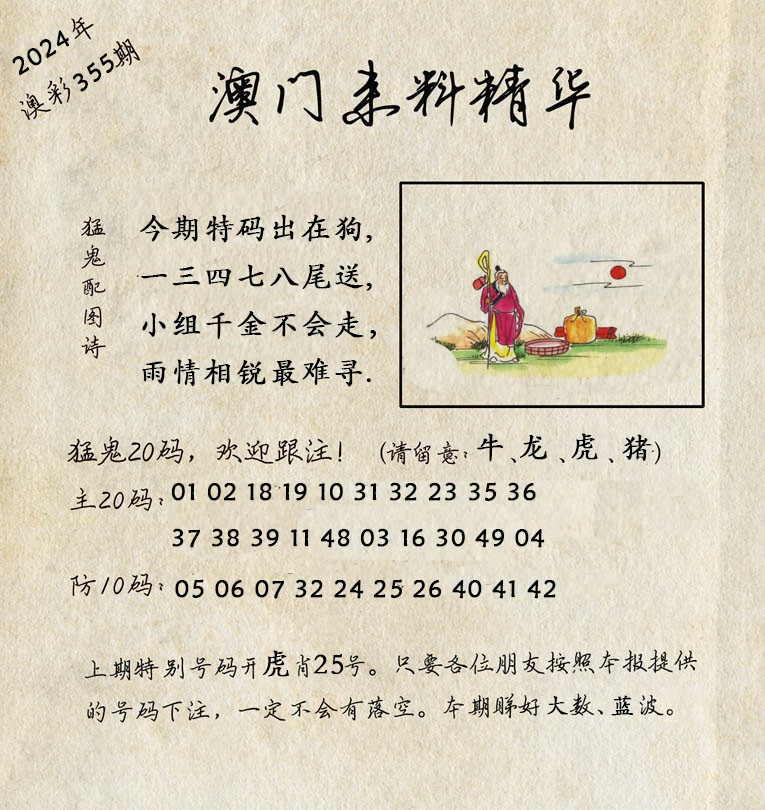 2024年
澳彩355期
澳门来料精华
猛鬼配图诗
今期特码出在狗,
一三四七八尾送,
小组千金不会走,
雨情相锐最难寻.
猛鬼20码，欢迎跟注！ (请留意：牛、龙、虎、猪)
主20码：01 02 18 19 10 31 32 23 35 36
37 38 39 11 48 03 16 30 49 04
防10码：05 06 07 32 24 25 26 40 41 42
上期特别号码开虎肖25号。只要各位朋友按照本报提供
的号码下注，一定不会有落空。本期睇好大数、蓝波。